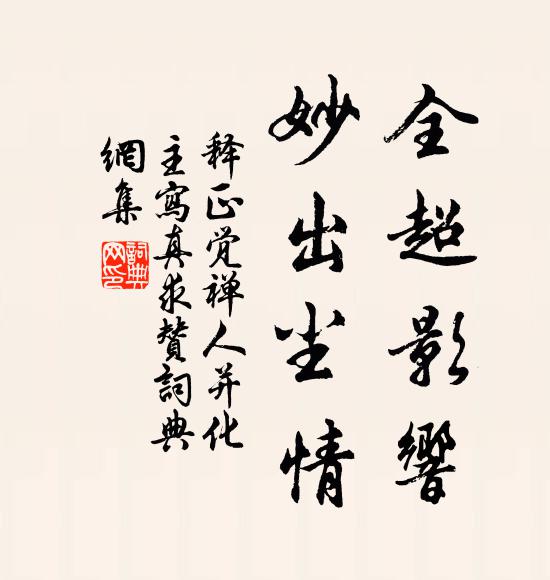 全超影響
妙出尘情
释正觉禅人并化
主寫真求赞詞典
網集
詞典
网印